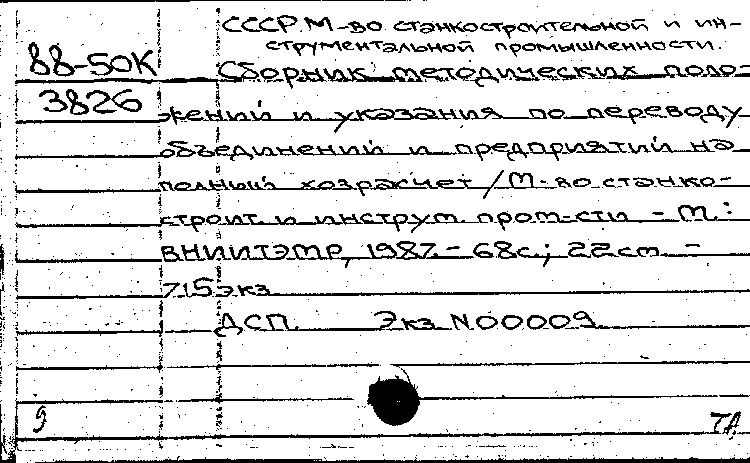 СССР. М-во станкостроительной и ин-
струментальной промышленности.
88-50К
3826
Сборник методических поло-
жений и указания по переводу
объединений и предприятий на
полный хозрасчет / М-во станко-
строит. и инструм. пром-сти. - М.:
ВНИИТЭМР, 1987. - 68с.; 22см. -
715экз.
ДСП. Экз N00009
9
ТА